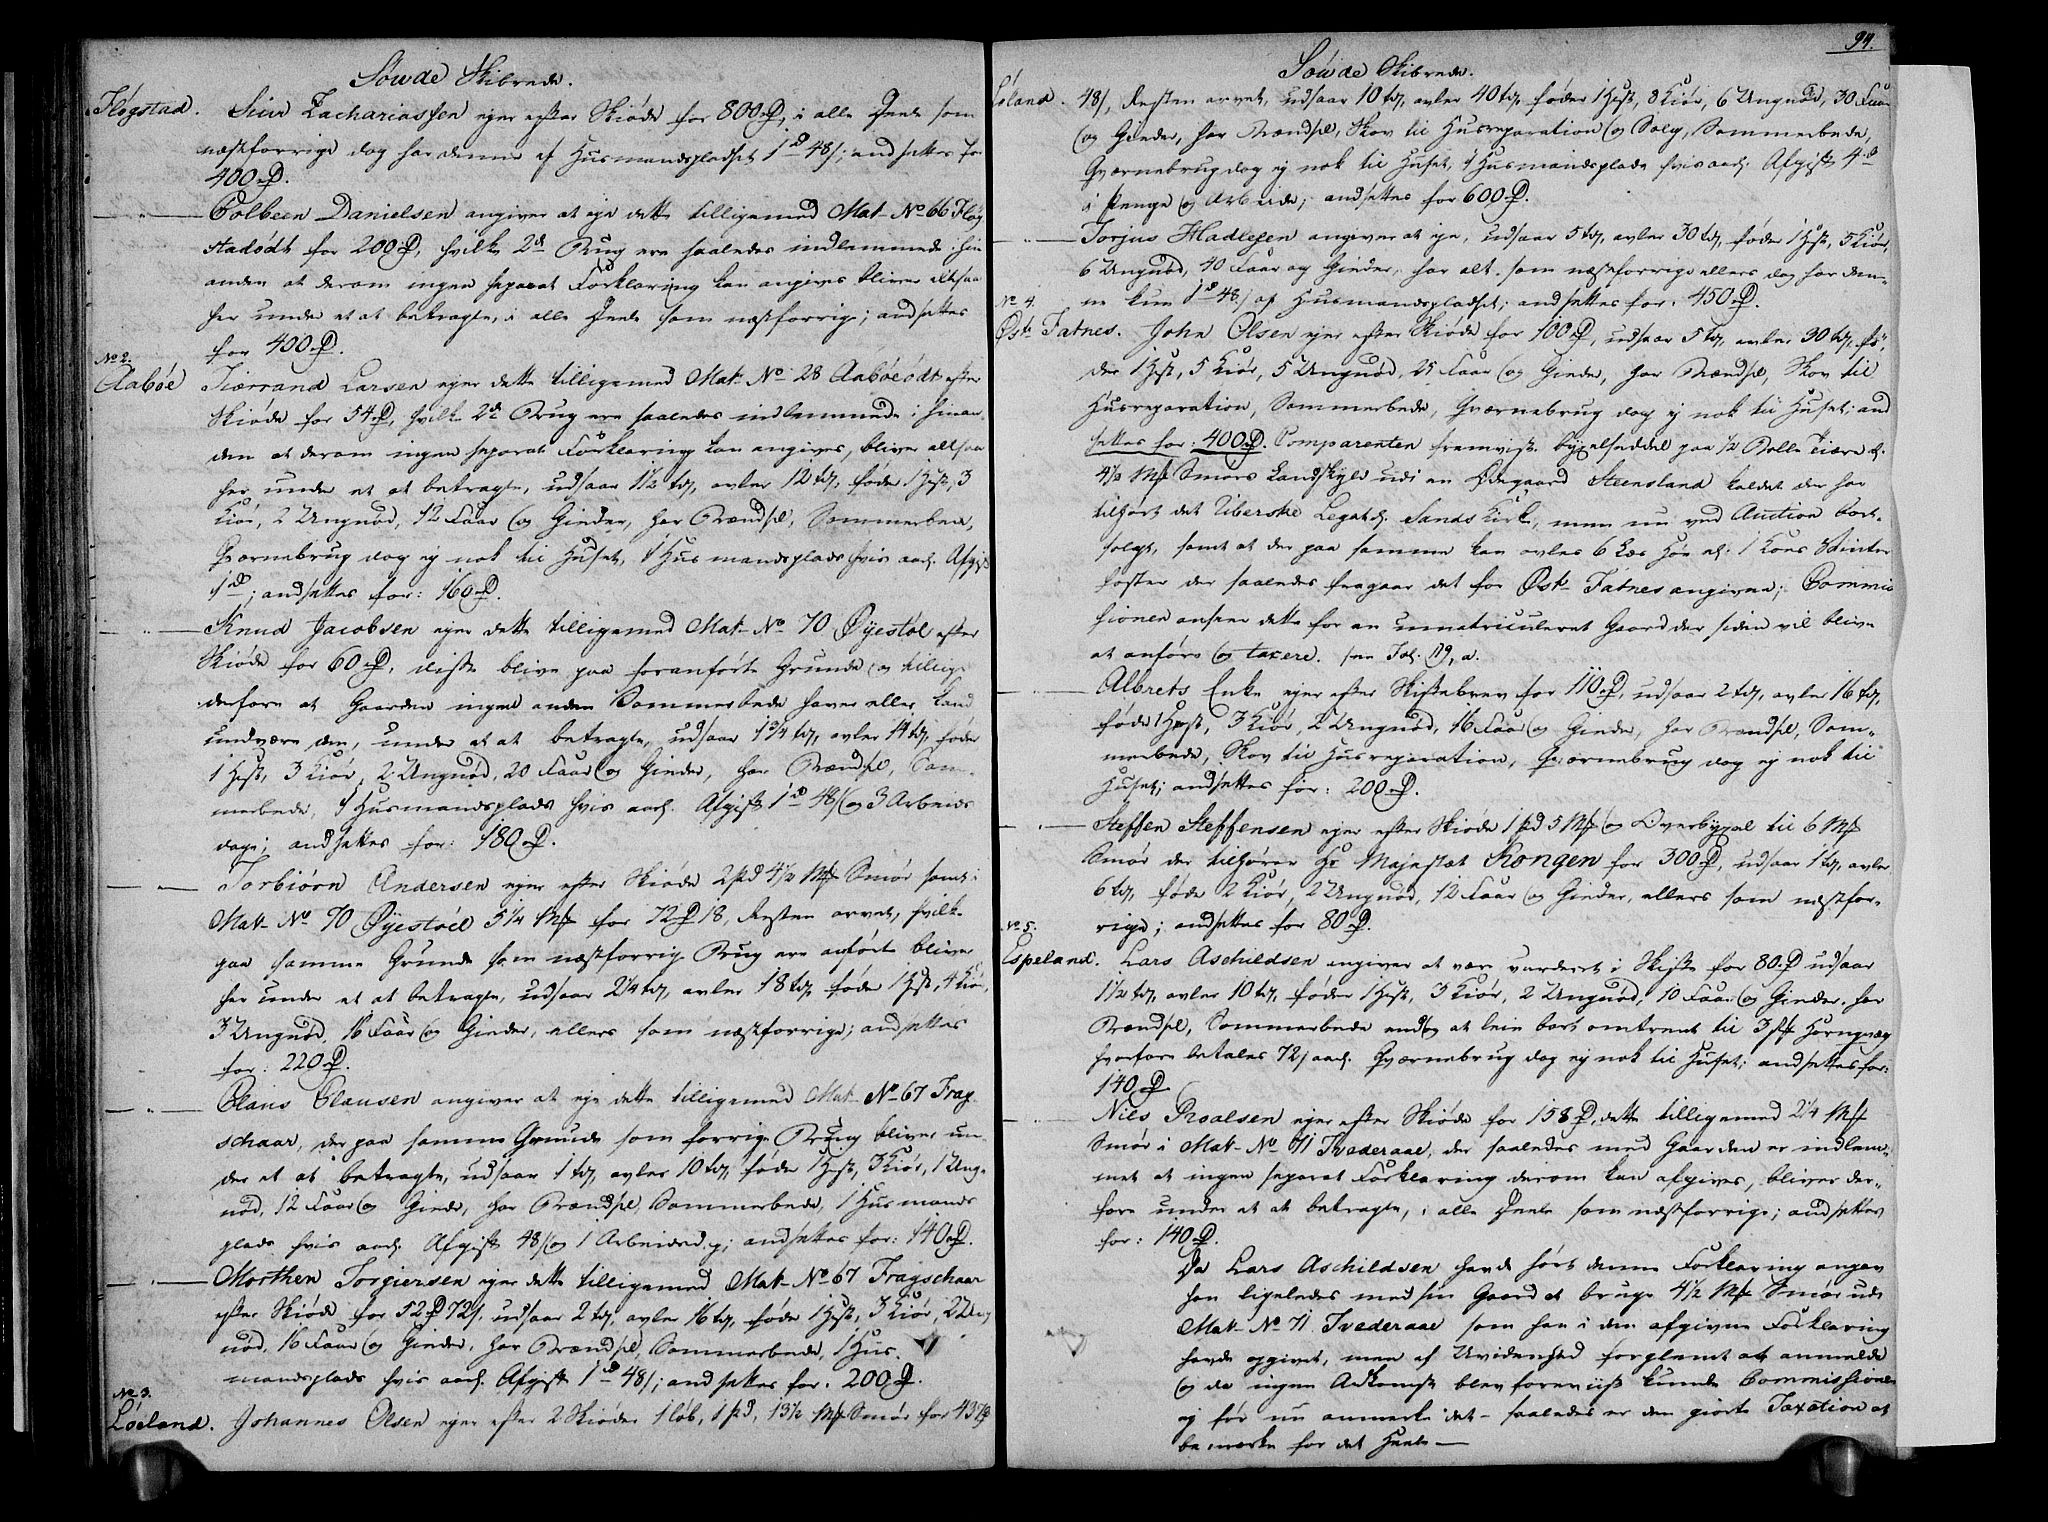 Søwde Skibrede.
Fløgstad. Siur Zachariassen ejer efter Skiøde for 800 rd, i alle Deele som
næstforrige dog har denne af Husmandspladset 1 rd 48 s; ansættes for
400 rd.
— " — Colbeen Danielsen angiver at eje dette tilligemed Mat. No 66 Fløg
stadødt for 200 rd, hvilke 2de Brug ere saaledes indlemmede i hin
anden at derom ingen separat Forklaring kan angives bliver altsaa
her under et at betragte, i alle Deele som næstforrige; ansættes
for 400 rd.
No 2.
Aabøe Tiærrand Larsen ejer dette tilligemed Mat. No 28 Aabøeødt efter
Skiøde for 54 rd, hvilke 2de Brug ere saaledes indlemmede i hinan
den at derom ingen separat Forklaring kan angives, bliver altsaa
her under et at betragte, udsaar 1 1/2 td, avler 12 td, føder 1 Hest, 3
Kiør, 2 Ungnød, 12 Faar og Gieder, har Brændsel, Sommerbede,
Qværnebrug dog ej nok til Huset, 1 Husmandsplads hvis aarl. Afgift
1 rd; ansættes for: 160 rd.
— " — Knud Jacobsen ejer dette tilligemed Mat. No 70 Øyestøl efter
Skiøde for 60 rd, disse blive paa foranførte Grunde og tillige
derfore at Gaarden ingen anden Sommerbede haver eller kand
undvære den, under et at betragte, udsaar 1 3/4 td, avler 14 td, føder
1 Hest, 3 Kiør, 2 Ungnød, 20 Faar og Gieder, har Brændsel, Som-
merbede, 1 Husmandsplads hvis aarl. Afgift 1 rd 48 s og 3 Arbeids
dage; ansættes for: 180 rd.
— " — Torbiørn Andersen ejer efter Skiøde 2 pd 4 1/2 Mk Smør samt i
Mat. No 70 Øyestøel 5 1/4 Mk for 72 rd 18, Resten arvet, hvilke
paa samme Grunde som næstforrige Brug ere anførte bliver
her under et at betragte, udsaar 2 1/4 td, avler 18 td, føder 1 Hest, 4 Kiør,
3 Ungnød, 16 Faar og Gieder, ellers som næstforrige; ansættes
for: 220 rd.
— " — Claus Clausen angiver at eje dette tilligemed Mat. No 67 Frag
schaar, der paa samme Grunde som forrige Brug bliver un-
der et at betragte, udsaar 1 td, avler 10 td, føder 1 Hest, 3 Kiør, 1 Ung-
nød, 12 Faar og Gieder, har Brændsel, Sommerbede, 1 Husmands
plads hvis aarl. Afgift 48 s og 1 Arbeidsdag; ansættes for: 140 rd.
— " — Morthen Torgiersen ejer dette tilligemed Mat. No 67 Fragschaar
efter Skiøde for 52 rd 72 s, udsaar 2 td, avler 16 td, føder 1 Hest, 3 Kiør, 2 Ung
nød, 16 Faar og Gieder, har Brændsel, Sommerbede, 1 Hus-
mandsplads hvis aarl. Afgift 1 rd 48 s; ansættes for: 200 rd.
No 3.
Løeland. Johannes Olsen ejer efter 2 Skiøder 1 løb, 1 pd, 13 1/2 Mk Smør for 437 rd
94.
Søwde Skibrede.
Løland. 48 s, Resten arvet, udsaar 10 td, avler 40 td, føder 1 Hest, 8 Kiør, 6 Ungnød, 30 Faar
og Gieder, har Brændsel, Skov til Husreparation og Salg, Sommerbede,
Qværnebrug dog ej nok til Huset, 1 Husmandsplads hvis aarl. Afgift 4 rd
i Penge og Arbeide; ansættes for 600 rd.
— " — Torjus Hadlesen angiver at eje, udsaar 5 td, avler 30 td, føder 1 Hest, 5 Kiør,
6 Ungnød, 40 Faar og Gieder, har alt som næstforrige ellers dog har den-
ne kun 1 rd 48 s af Husmandspladset; ansættes for: 450 rd.
No 4.
Øst. Fatnes. John Olsen ejer efter Skiøde for 100 rd, udsaar 5 td, avler 30 td, fø-
der 1 Hest, 5 Kiør, 5 Ungnød, 25 Faar og Gieder, har Brændsel, Skov til
Husreparation, Sommerbede, Qværnebrug dog ej nok til Huset; an
sættes for: 400 rd. Comparenten fremviste bygselseddel paa 1/2 Bolle Tiære el.
4 1/2 Mk Smørs Landskyld udi en Ødegaard Steensland kaldet der har
tilhørt det Viberske Legat el. Sands Kirke, men nu ved Auction bort-
solgt, samt at der paa samme kan avles 6 Læs Høe el. 1 Koes Vinter
foster der saaledes fragaar det for Øst. Fatnes angivne; Commis
sionen anseer dette for en unmatriculeret Gaard der siden vil blive
at anføre og taxere. see Fol. 119, a.
— " — Albrets Enke ejer efter Skiftebrev for 110 rd, udsaar 2 td, avler 16 td,
føder 1 Hest, 3 Kiør, 2 Ungnød, 16 Faar og Gieder, har Brændsel, Som-
merbede, Skov til Husreparation, Qværnebrug dog ej nok til
Huset; ansættes for: 200 rd.
— " — Steffen Steffensen ejer efter Skiøde 1 pd 5 Mk og Overbygsel til 6 Mk
Smør der tilhører Hs Majestæt Kongen for 300 rd, udsaar 1 td, avler
6 td, føder 2 Kiør, 2 Ungnød, 12 Faar og Gieder, ellers som næstfor-
rige; ansættes for 80 rd.
No 5.
Espeland. Lars Aschildsen angiver at være vurderet i Skifte for 80 rd udsaar
1 1/2 td, avler 10 td, føder 1 Hest, 3 Kiør, 2 Ungnød, 10 Faar og Gieder, har
Brændsel, Sommerbede endog at leie bort omtrent til 3 st Hornqvæg
hvorfore betales 72 s aarl. Qværnebrug dog ej nok til Huset; ansættes for:
140 rd.
— " — Niels Roalsen ejer efter Skiøde for 158 rd, dette tilligemed 2 1/4 Mk
Smør i Mat. No 71 Tvederaae, der saaledes med Gaarden er indlem-
met at ingen separat Forklaring derom kan afgives, bliver der-
fore under et at betragte, i alle Deele som næstforrige; ansættes
for: 140 rd.
Da Lars Aschildsen havde hørt denne Forklaring angav
han ligeledes med sin Gaard at bruge 4 1/2 Mk Smør udi
Mat. No 71 Tvederaae som han i den afgivne Forklaring
havde opgivet, men af Uvidenhed forglemt at anmelde
og da ingen Adkomst blev foreviist kunde Commissionen
ej før nu anmerke det - saaledes er den giorte Taxation at
bemærke for det Heele —